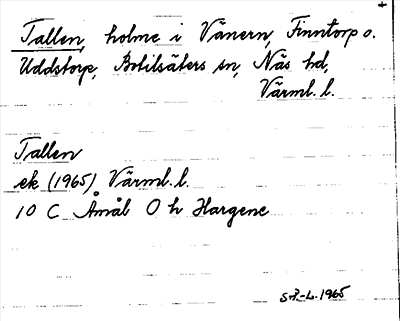 Tallen, holme i Vänern, Finntorp o.
Uddstorp, Botilsäters sn, Näs hd,
Värml. l.
Tallen
ek (1965) Värml. l.
10 C Åmål O h Hargene
SB-L. 1965